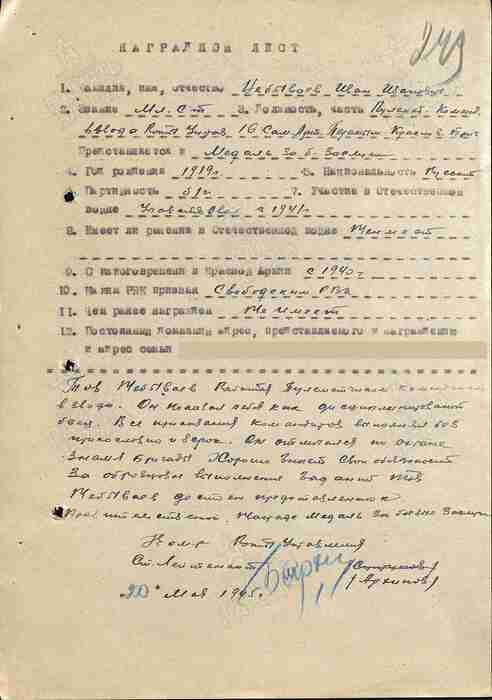 243
НАГРАДНОЙ ЛИСТ
1. Фамилия, имя, отчество Небываев Иван Иванович
2. Звание Мл. С-т 3. Должность, часть Пулемет. Команд.
взвода Роты Управ. 16 Сам. Арт. Брig
Представляется к Медаль За б. Заслуги
4. Год рождения 1919г 5. Национальность Русский
6. Партийность б/п 7. Участие в Отечественной
войне с 1941г
8. Имеет ли ранения в Отечественной войне Не имеет
9. С какого времени в Красной Армии с 1940г
10. Каким РВК призван Свободским РВК
11. Чем ранее награжден Не имеет
12. Постоянный домашний адрес, представляемого к награждению
и адрес семьи
Тов Небываев Работая пулеметчиком комендант.
взвода. Он показал себя как дисциплинированный
боец. Все приказания командиров выполнял
и верно. Он отличался по охране
знамя Бригады Хорошо знает свои обязаности
За образцовое выполнения заданий тов
Небываев достоин представления к
Правительственной Награде Медаль За боевые Заслуги
Ком-р Роты Управления
Ст. Лейтенант (Архипов)
"20" Мая 1945г.